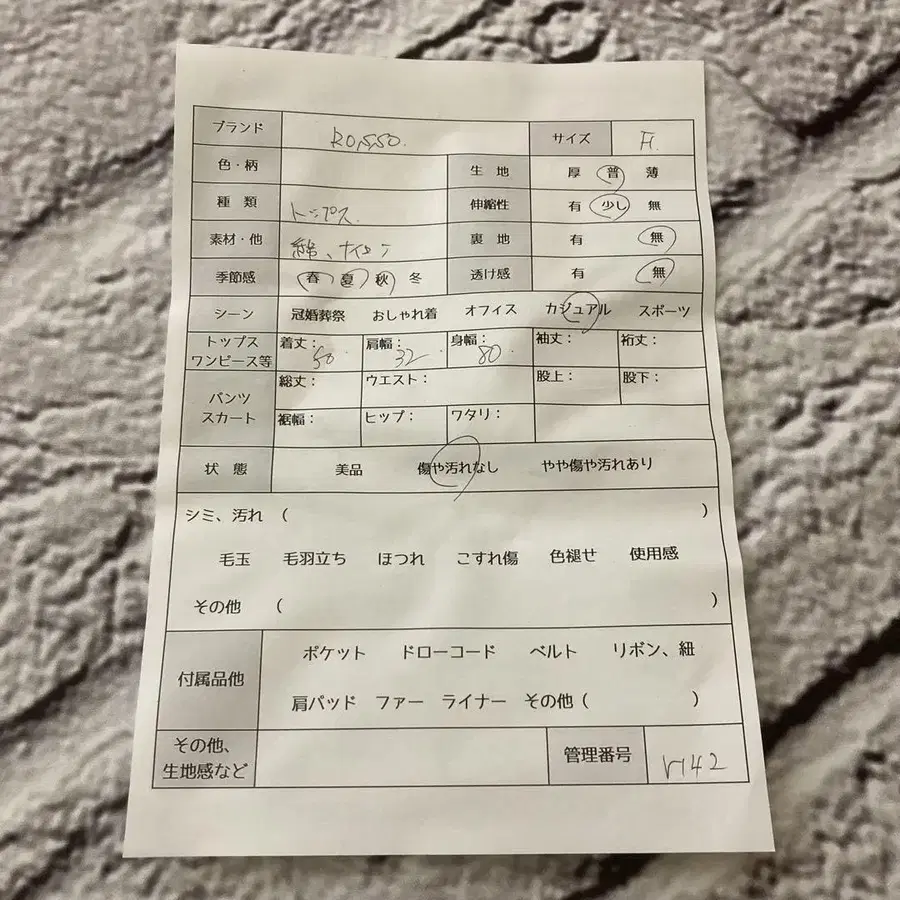 ブランド ROSSO. サイズ F.
色・柄 生地 厚 普 薄
種類 トップス. 伸縮性 有 少し 無
素材・他 綿、ナイロン 裏地 有 無
季節感 春 夏 秋 冬 透け感 有 無
シーン 冠婚葬祭 おしゃれ着 オフィス カジュアル スポーツ
トップス
ワンピース等 着丈: 50 肩幅: 32 身幅: 80 袖丈: 裄丈:
パンツ
スカート 総丈: ウエスト: 股上: 股下:
裾幅: ヒップ: ワタリ:
状態 美品 傷や汚れなし やや傷や汚れあり
シミ、汚れ ( )
毛玉 毛羽立ち ほつれ こすれ傷 色褪せ 使用感
その他 ( )
付属品他 ポケット ドローコード ベルト リボン、紐
肩パッド ファー ライナー その他 ( )
その他、
生地感など 管理番号 r142